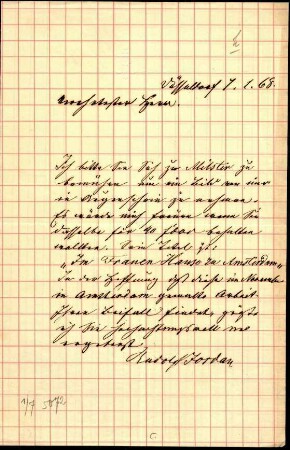 Düsseldorf 7.1.68.
Verehrtester Herr.
Ich bitte Sie Sich zu Milster zu
bemühen um ein Bild von mir
in Augenschein zu nehmen.
Es würde mich freuen wenn Sie
dasselbe für 40 behalten
wollten. Sein Titel ist:
"Im Frauen Hause zu Amsterdam"
In der Hoffnung daß diese im
in Amsterdam gemalte Arbeit
Ihren Beifall findet grüßt
Sie hochachtungsvoll
ergebenst.
Rudolf Jordan
1/7 5872